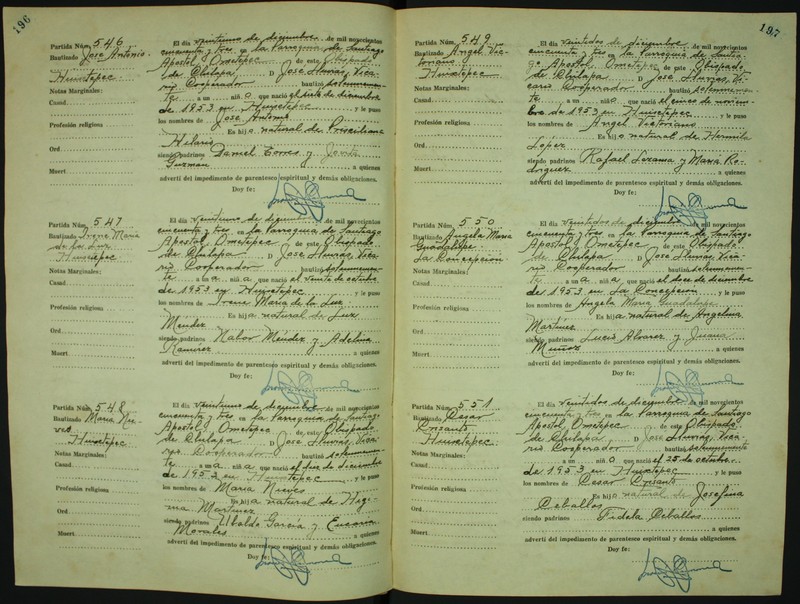 196
Partida Núm. 546
Bautizado Jose Antonio
Huixtepec
Notas Marginales:
Casad
Profesión religiosa
Ord
Muert
El día veintiuno de diciembre de mil novecientos
cincuenta y tres en la Parroquia de Santiago
Apostol Ometepec de este Obispado
de Chilapa D Jose Lluvias, Vica-
rio Cooperador bautizó solemnemen-
te a un niño que nació el siete de diciembre
de 1953 en Huixtepec y le puso
los nombres de Jose Antonio
Es hijo natural de Prisciliana
Hilario
siendo padrinos Daniel Torres y
Guzman a quienes
advertí del impedimento de parentesco espiritual y demás obligaciones.
Doy fe:
Partida Núm. 547
Bautizado Irene Maria
de la Luz
Huixtepec
Notas Marginales:
Casad
Profesión religiosa
Ord
Muert
El día veintiuno de diciembre de mil novecientos
cincuenta y tres en la Parroquia de Santiago
Apostol, Ometepec de este Obispado
de Chilapa D Jose Lluvias, Vica-
rio Cooperador bautizó solemnemen-
te a una niña que nació el veinte de octubre
de 1953 en Huixtepec y le puso
los nombres de Irene Maria de la Luz
Es hija natural de Luz
Mendez
siendo padrinos Nabor Méndez y Adelina
Ramirez a quienes
advertí del impedimento de parentesco espiritual y demás obligaciones.
Doy fe:
Partida Núm. 548
Bautizado Maria Nie-
ves
Huixtepec
Notas Marginales:
Casad
Profesión religiosa
Ord
Muert
El día veintiuno de diciembre de mil novecientos
cincuenta y tres en la Parroquia de Santiago
Apostol Ometepec de este Obispado
de Chilapa D Jose Lluvias, Vica-
rio Cooperador bautizó solemnemen-
te a una niña que nació el diez de diciembre
de 1953 en Huixtepec y le puso
los nombres de Maria Nieves
Es hija natural de Higi-
nia Martinez
siendo padrinos Ubaldo Garcia y
Morales a quienes
advertí del impedimento de parentesco espiritual y demás obligaciones.
Doy fe:
197
Partida Núm. 549
Bautizado Angel Vic-
toriano
Huixtepec
Notas Marginales:
Casad
Profesión religiosa
Ord
Muert
El día veintidos de diciembre de mil novecientos
cincuenta y tres en la Parroquia de Santia-
go Apostol, Ometepec de este Obispado
de Chilapa D Jose Lluvias, Vi-
cario Cooperador bautizó solemnemen-
te a un niño que nació el cinco de noviem-
bre de 1953 en Huixtepec y le puso
los nombres de Angel Victoriano
Es hijo natural de Hermila
Lopez
siendo padrinos Rafael Lezama y Maria Ro-
driguez a quienes
advertí del impedimento de parentesco espiritual y demás obligaciones.
Doy fe:
Partida Núm. 550
Bautizado Angela Maria
Guadalupe
La Concepción
Notas Marginales:
Casad
Profesión religiosa
Ord
Muert
El día veintidos de diciembre de mil novecientos
cincuenta y tres en la Parroquia de Santiago
Apostol, Ometepec de este Obispado
de Chilapa D Jose Lluvias, Vica-
rio Cooperador bautizó solemnemen-
te a una niña que nació el doce de diciembre
de 1953 en La Concepción y le puso
los nombres de Angela Maria Guadalupe
Es hija natural de Angelina
Martinez
siendo padrinos Lucio Alvarez y Juana
Muñoz a quienes
advertí del impedimento de parentesco espiritual y demás obligaciones.
Doy fe:
Partida Núm. 551
Bautizado Cesar
Crisanto
Huixtepec
Notas Marginales:
Casad
Profesión religiosa
Ord
Muert
El día veintidos de diciembre de mil novecientos
cincuenta y tres en la Parroquia de Santiago
Apostol, Ometepec de este Obispado
de Chilapa D Jose Lluvias, Vica-
rio Cooperador bautizó solemnemente
a un niño que nació el 25 de octubre
de 1953 en Huixtepec y le puso
los nombres de Cesar Crisanto
Es hijo natural de Josefina
Ceballos
siendo padrinos Fidela Ceballos
a quienes
advertí del impedimento de parentesco espiritual y demás obligaciones.
Doy fe: